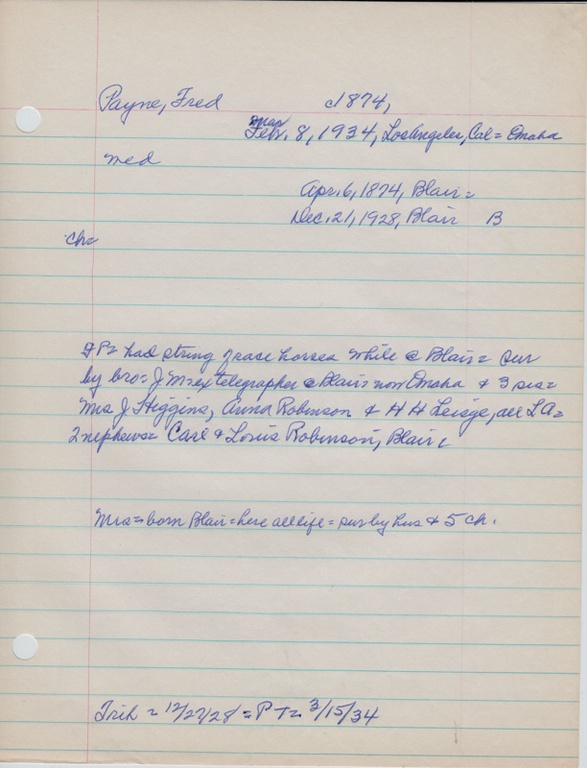 Payne, Fred c1874,
Mar
Feb. 8, 1934, Los Angeles, Cal = Omaha
med
Apr. 6, 1874, Blair =
Dec. 21, 1928, Blair B
ch=
FP= had string of race horses while @ Blair = sur
by bro = J M = ex telegrapher @ Blair = now Omaha & 3 sis =
Mrs J Higgins, Anna Robinson & H H Leisge, all LA =
2 nephews = Carl & Louis Robinson, Blair
Mrs = born Blair = here all life = sur by hus & 5 ch.
Trib = 12/27/28 = P T = 3/15/34